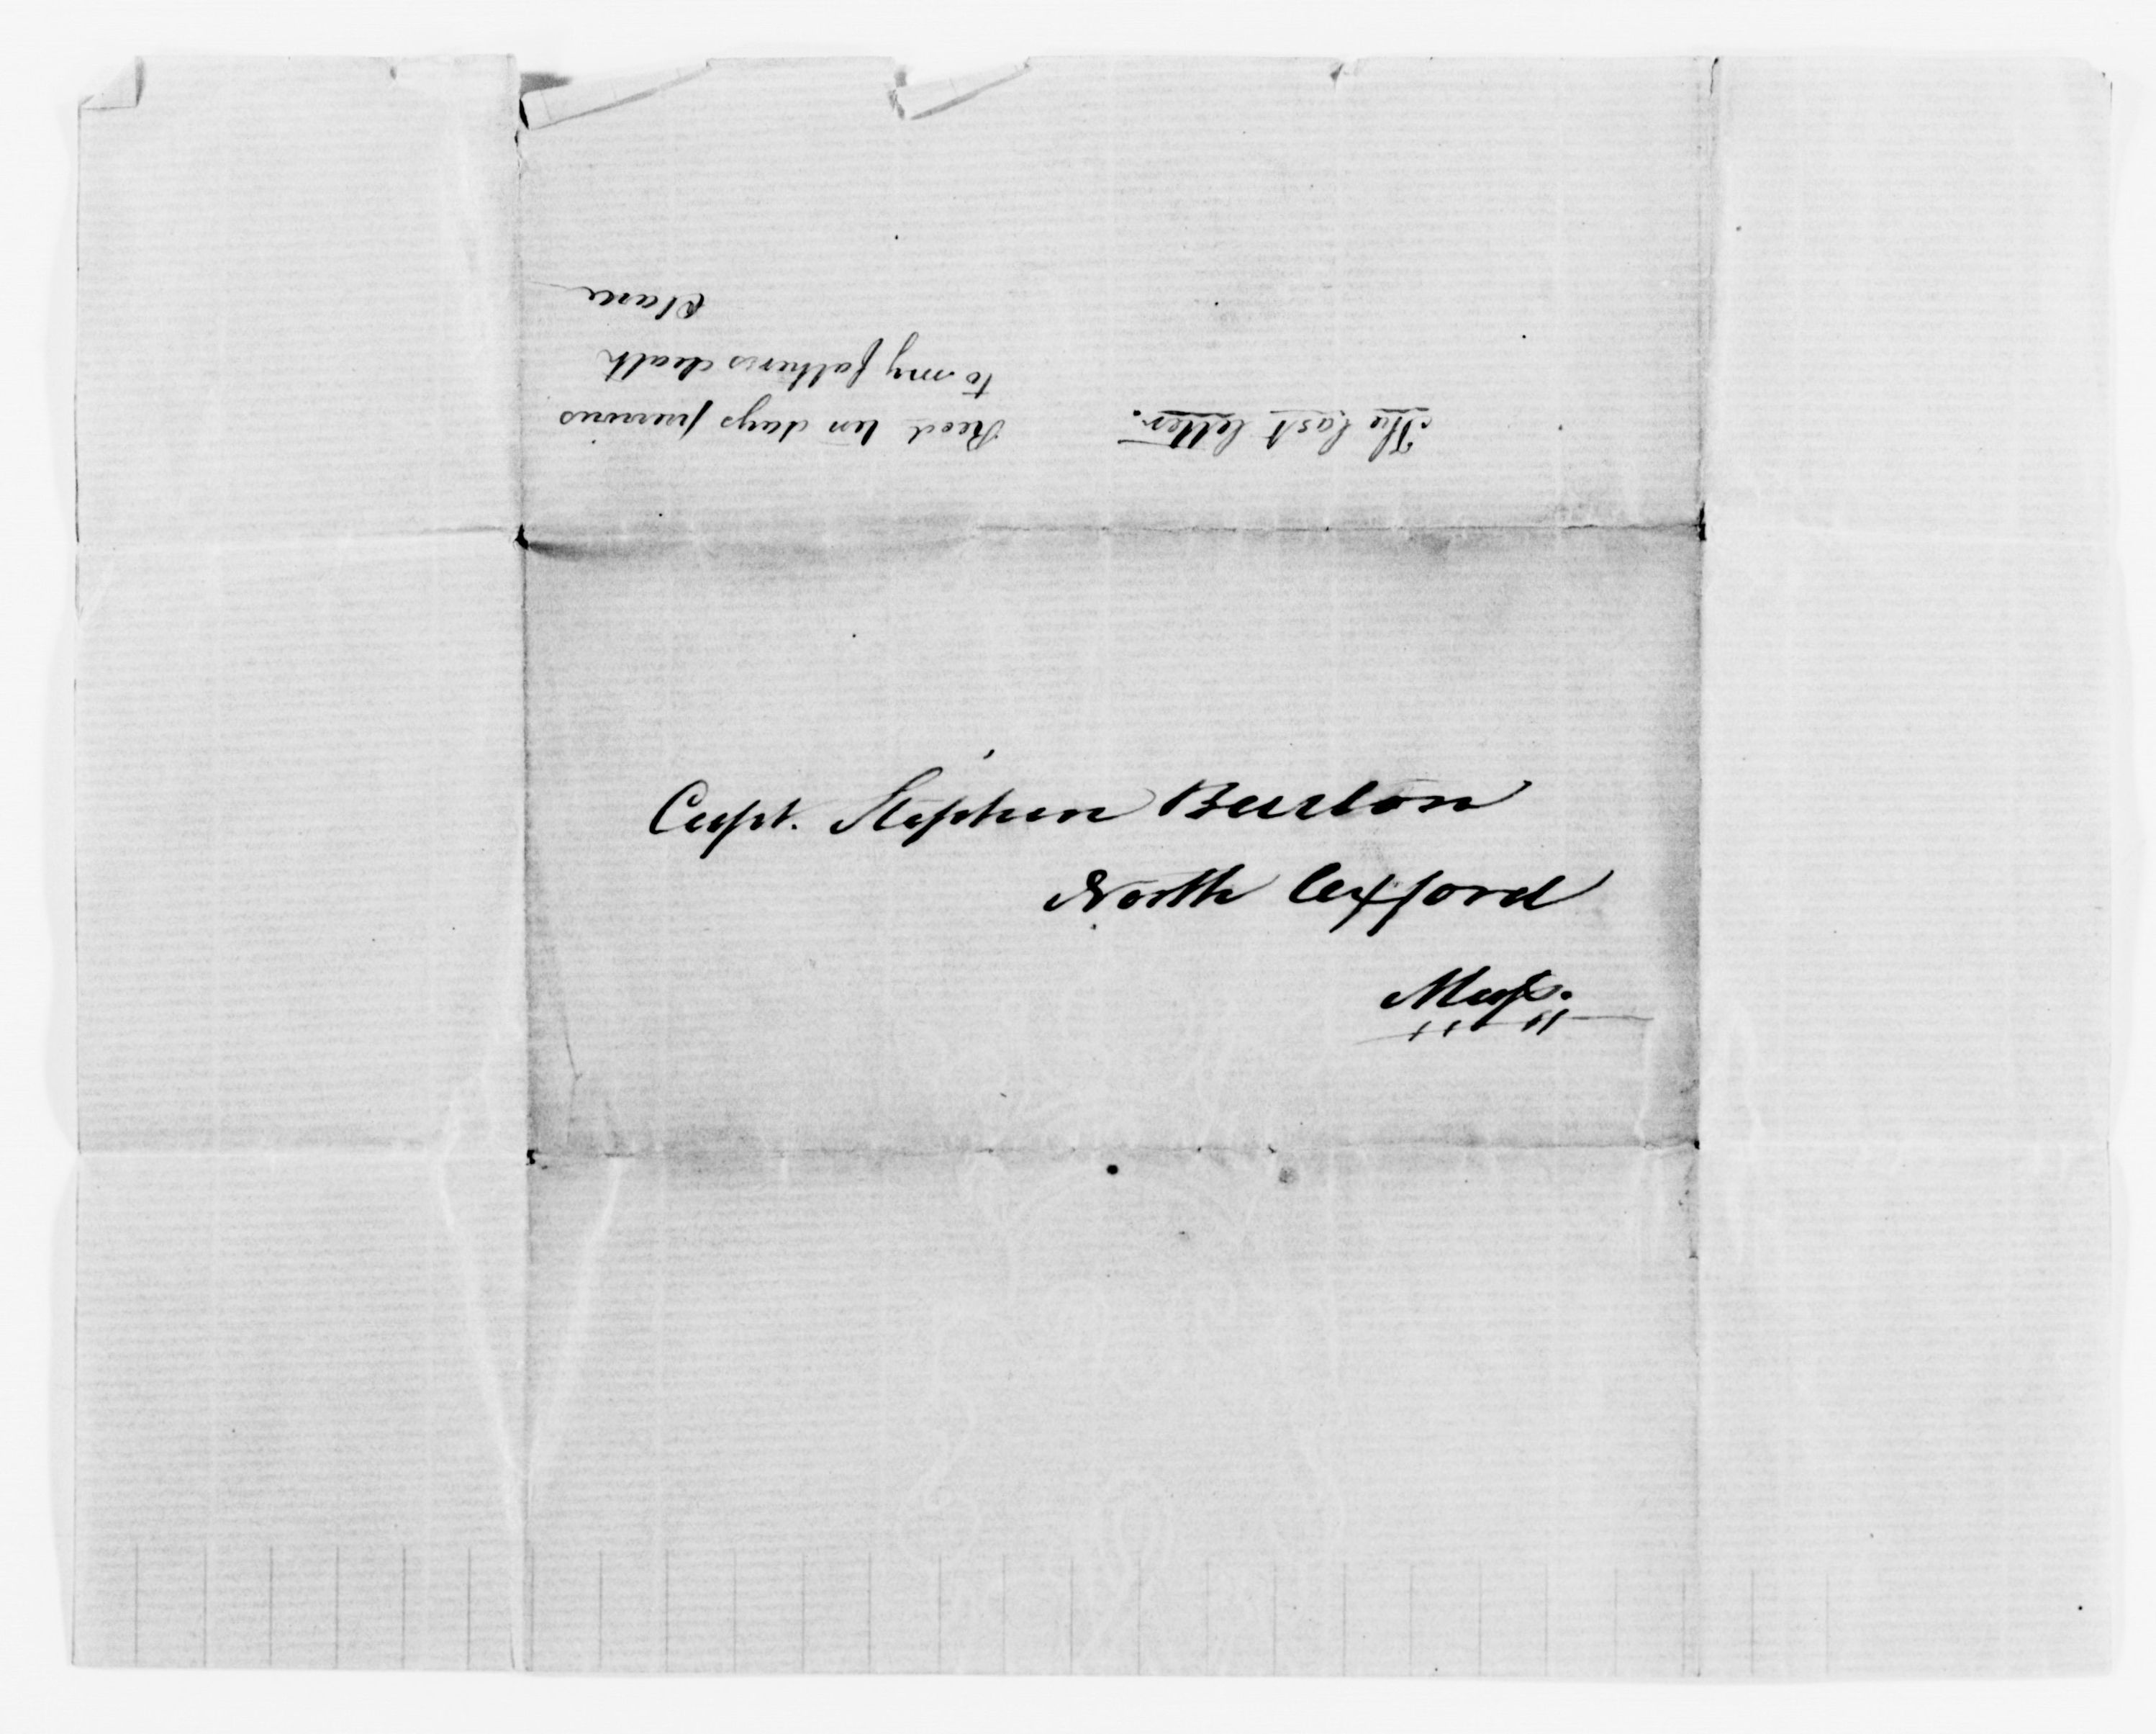 The last letter.
Recd ten days previous
to my father's death
Clara
Capt. Stephen Barton
North Oxford
Mass.